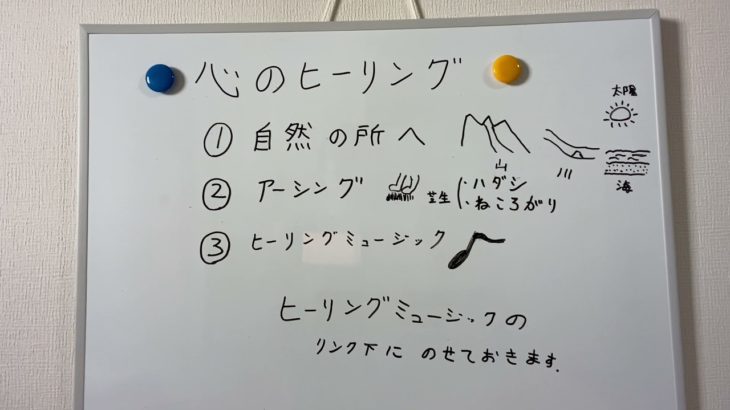 心のヒーリング
① 自然の所へ
山
川
太陽
海
② アーシング 芝生 ・ハダシ
・ねころがり
③ ヒーリングミュージック
ヒーリングミュージックの
リンク下に のせておきます.